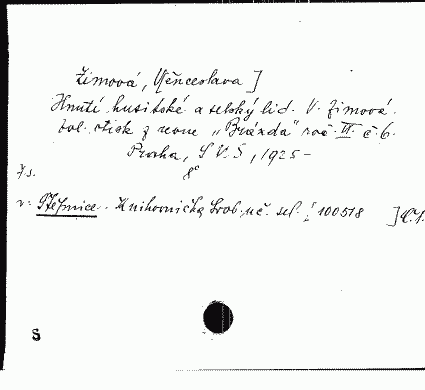 Zimová, Věnceslava]
Hnutí husitské a selský lid. V. Zimová.
otisk z revue „Brázda" roč. VI. č. 6.
Praha, S V. S, 1925 -
8°
7 s.
v: Štěpnice. Knihovnička 100518 ] č. 1.
S